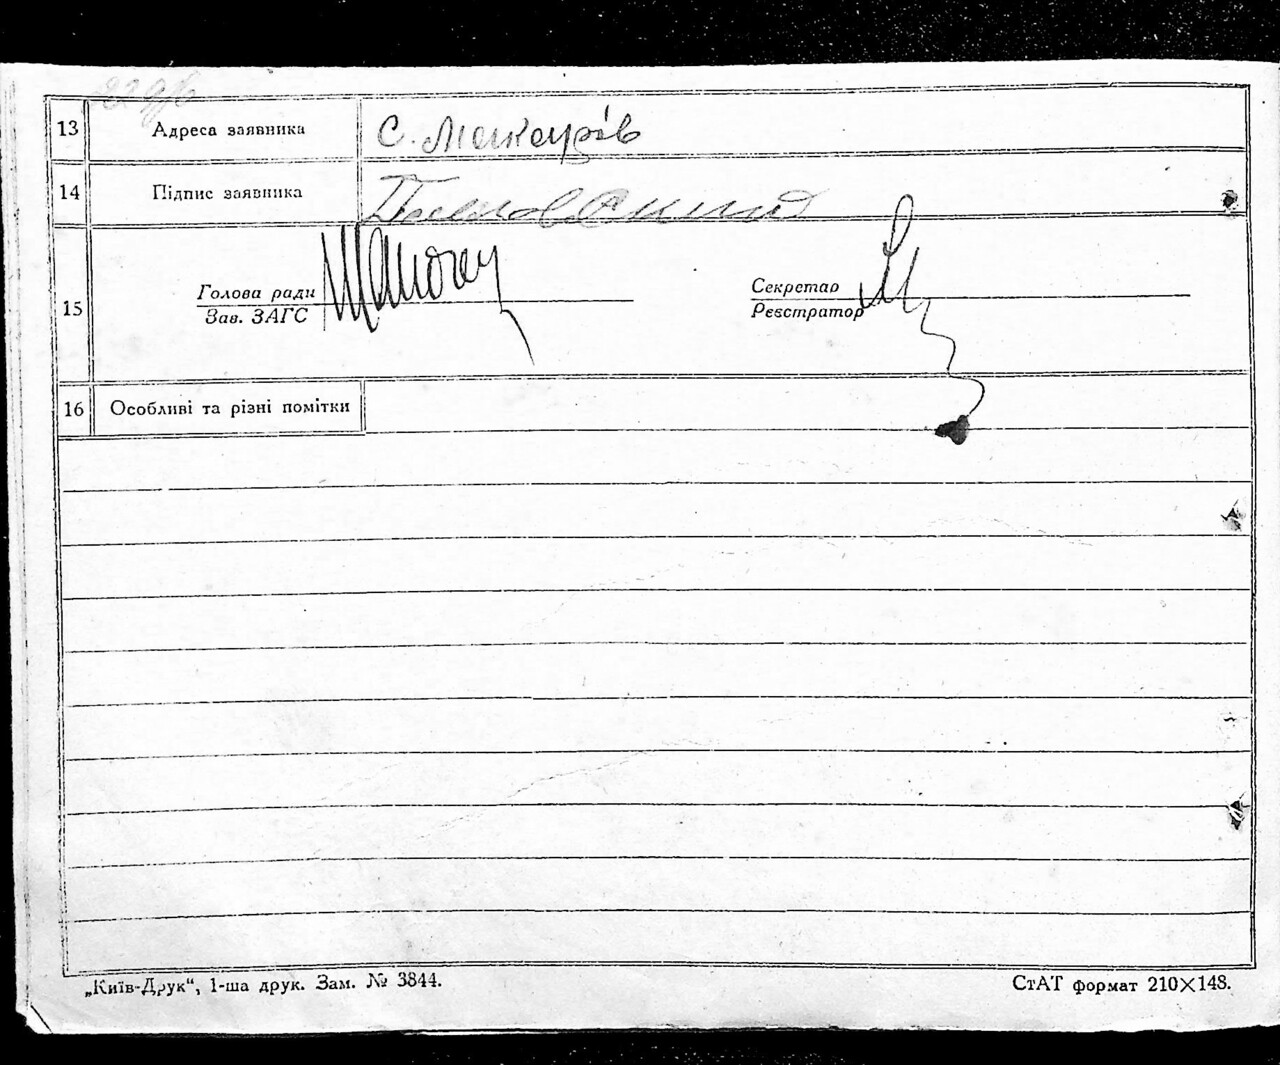 13 Адреса заявника с. Макарів
14 Підпис заявника
15 Голова ради Секретар
Зав. ЗАГС Реєстратор
16 Особливі та різні помітки
„Київ-Друк“, 1-ша друк. Зам. № 3844. СтАТ формат 210×148.